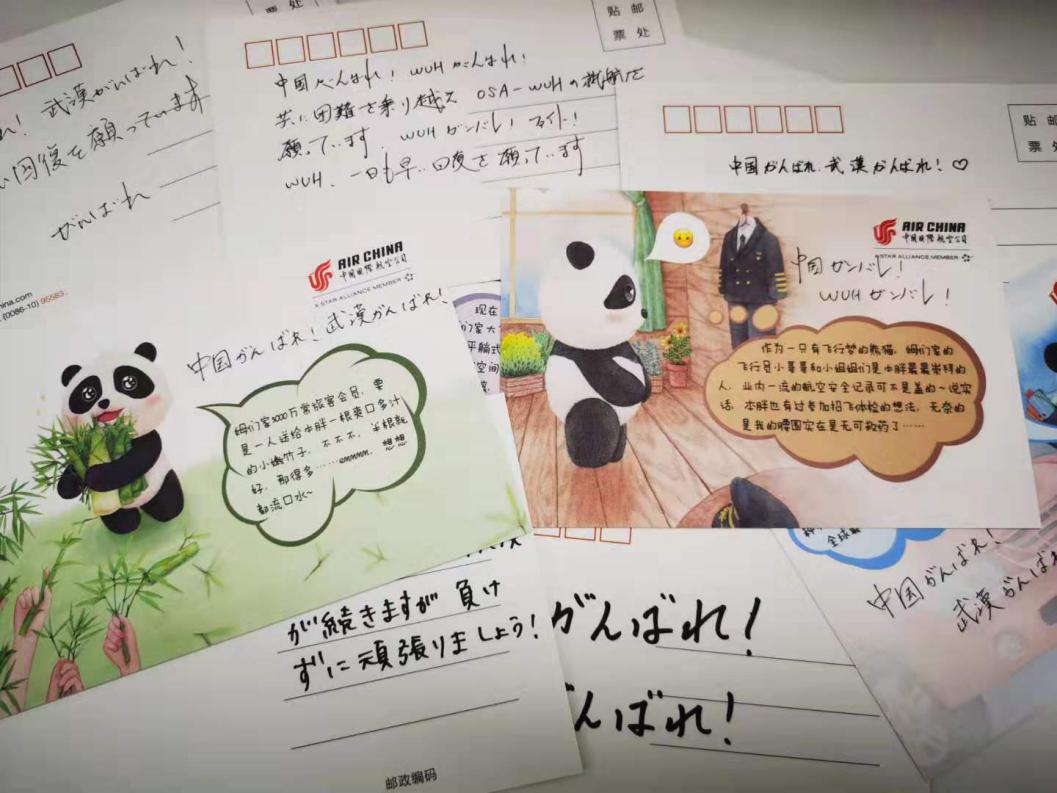 票处
武漢がんばれ!
れ!
回復を願っています
がんばれ
china.com
(0086-10) 95583
贴 邮
票 处
中国がんばれ! WUH がんばれ!
共に困難を乗り越え OSA-WUHの就航を
願っています. WUH ガンバレ! ファイト!
WUH. 一日も早い回復を願っています
贴 邮
票 处
中国がんばれ.武漢がんばれ!♡
AIR CHINA
中国国際航空公司
A STAR ALLIANCE MEMBER
中国がんばれ!武漢がんばれ!
姆们家5000万常旅客会员,要
是一人送给本胖一根爽口多汁
的小嫩竹子,不不不,半根就
好,那得多……emmmm,想想
都流口水~
现在
们家大
平躺式
AIR CHINA
中国国際航空公司
A STAR ALLIANCE MEMBER
中国ガンバレ!
WUHガンバレ!
作为一只有飞行梦的熊猫,姆们家的
飞行员小哥哥和小姐姐们是本胖最最崇拜的
人,业内一流的航空安全记录可不是盖的~说实
话,本胖也有过参加招飞体检的想法,无奈的
是我的腰围实在是无可救药了……
全球
中国がんばれ!
武漢がんばれ
が続きますが 負け
ずに頑張りましょう!
がんばれ!
んばれ!
邮政编码